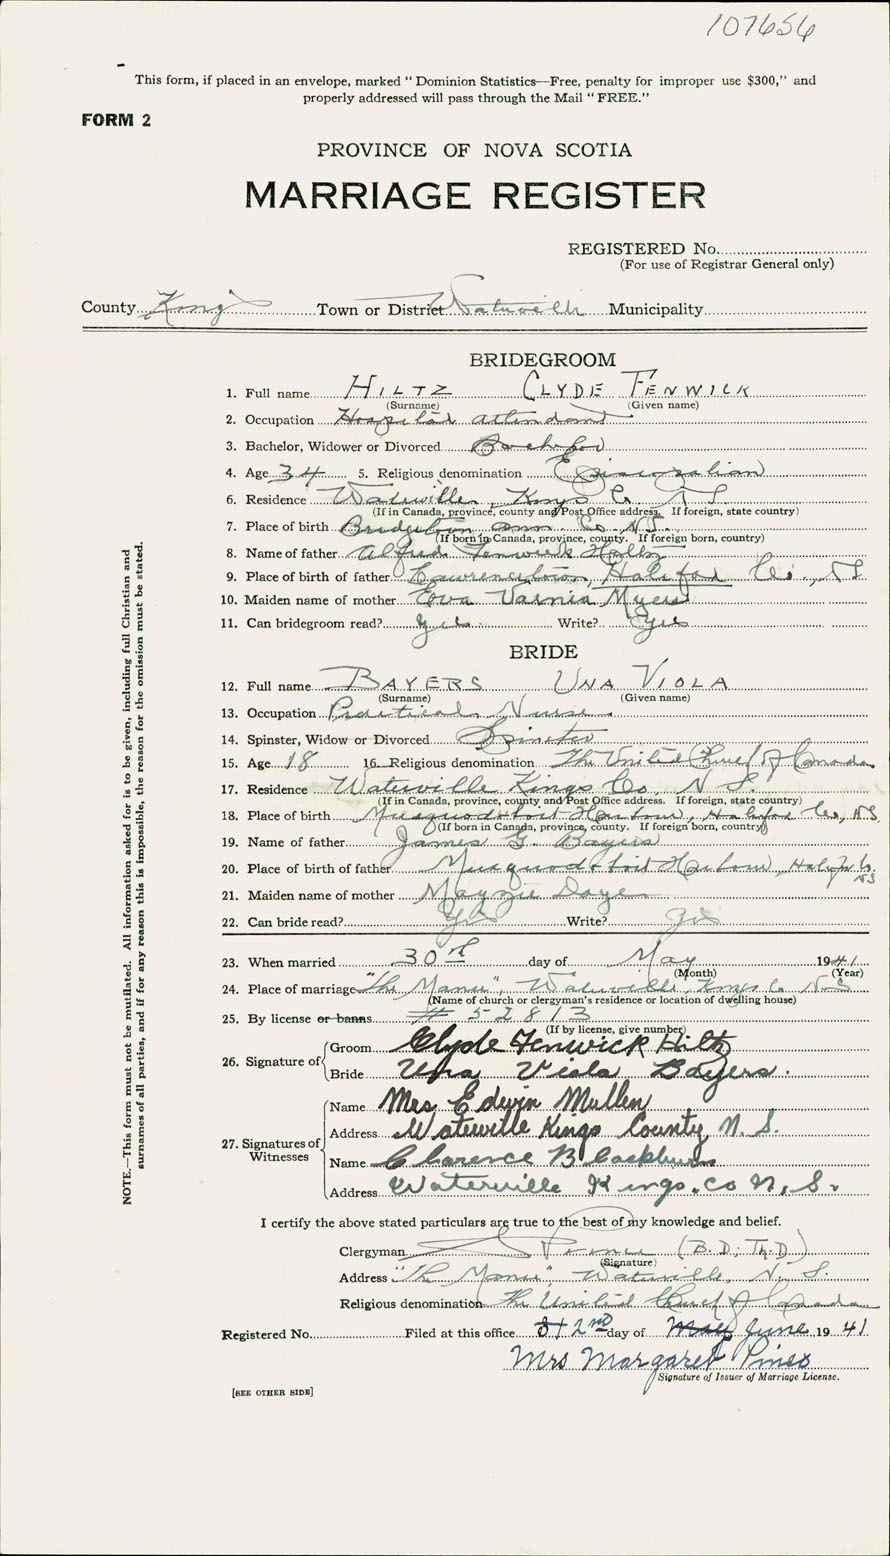 107656
This form, if placed in an envelope, marked “Dominion Statistics—Free, penalty for improper use $300,” and
properly addressed will pass through the Mail “FREE.”
FORM 2
PROVINCE OF NOVA SCOTIA
MARRIAGE REGISTER
REGISTERED No.
(For use of Registrar General only)
County Kings Town or District Waterville Municipality
BRIDEGROOM
1. Full name HILTZ CLYDE FENWICK
(Surname) (Given name)
2. Occupation Hospital attendant
3. Bachelor, Widower or Divorced Bachelor
4. Age 34 5. Religious denomination Episcopalian
6. Residence Waterville, Kings Co. N S
(If in Canada, province, county and Post Office address. If foreign, state country)
7. Place of birth Bridgetown Ann. Co. N.S.
(If born in Canada, province, county. If foreign born, country)
8. Name of father Alfred Fenwick Hiltz
9. Place of birth of father Lawrencetown, Halifax Co., N S
10. Maiden name of mother Varnia Myers
11. Can bridegroom read? Yes Write? Yes
BRIDE
12. Full name BAYERS UNA VIOLA
(Surname) (Given name)
13. Occupation Practical Nurse
14. Spinster, Widow or Divorced Spinster
15. Age 18 16. Religious denomination The United Church of Canada
17. Residence Waterville Kings Co. N S.
(If in Canada, province, county and Post Office address. If foreign, state country)
18. Place of birth Musquodoboit Harbour, Halifax Co., N.S.
(If born in Canada, province, county. If foreign born, country)
19. Name of father James G. Bayers
20. Place of birth of father Musquodoboit Harbour, Halifax Co. NS
21. Maiden name of mother Mayzie Daye
22. Can bride read? Yes Write? Yes
23. When married 30th day of May 1941
(Month) (Year)
24. Place of marriage "The Manse", Waterville Kings Co N S
(Name of church or clergyman's residence or location of dwelling house)
25. By license or banns # 52813
(If by license, give number)
26. Signature of Groom Clyde Fenwick Hiltz
Bride Una Viola Bayers.
27. Signatures of Witnesses Name Mrs Edwin Mullen
Address Waterville Kings County N. S.
Name Clarence B Cockburn
Address Waterville Kings.co N, S.
I certify the above stated particulars are true to the best of my knowledge and belief.
Clergyman (B.D; Th.D)
(Signature)
Address "The Manse", Waterville, N. S.
Religious denomination The United Church of Canada
Registered No. Filed at this office 2nd day of May June 1941
Mrs Margaret Pines
Signature of Issuer of Marriage License.
[SEE OTHER SIDE]
NOTE.—This form must not be mutilated. All information asked for is to be given, including full Christian and
surnames of all parties, and if for any reason this is impossible, the reason for the omission must be stated.